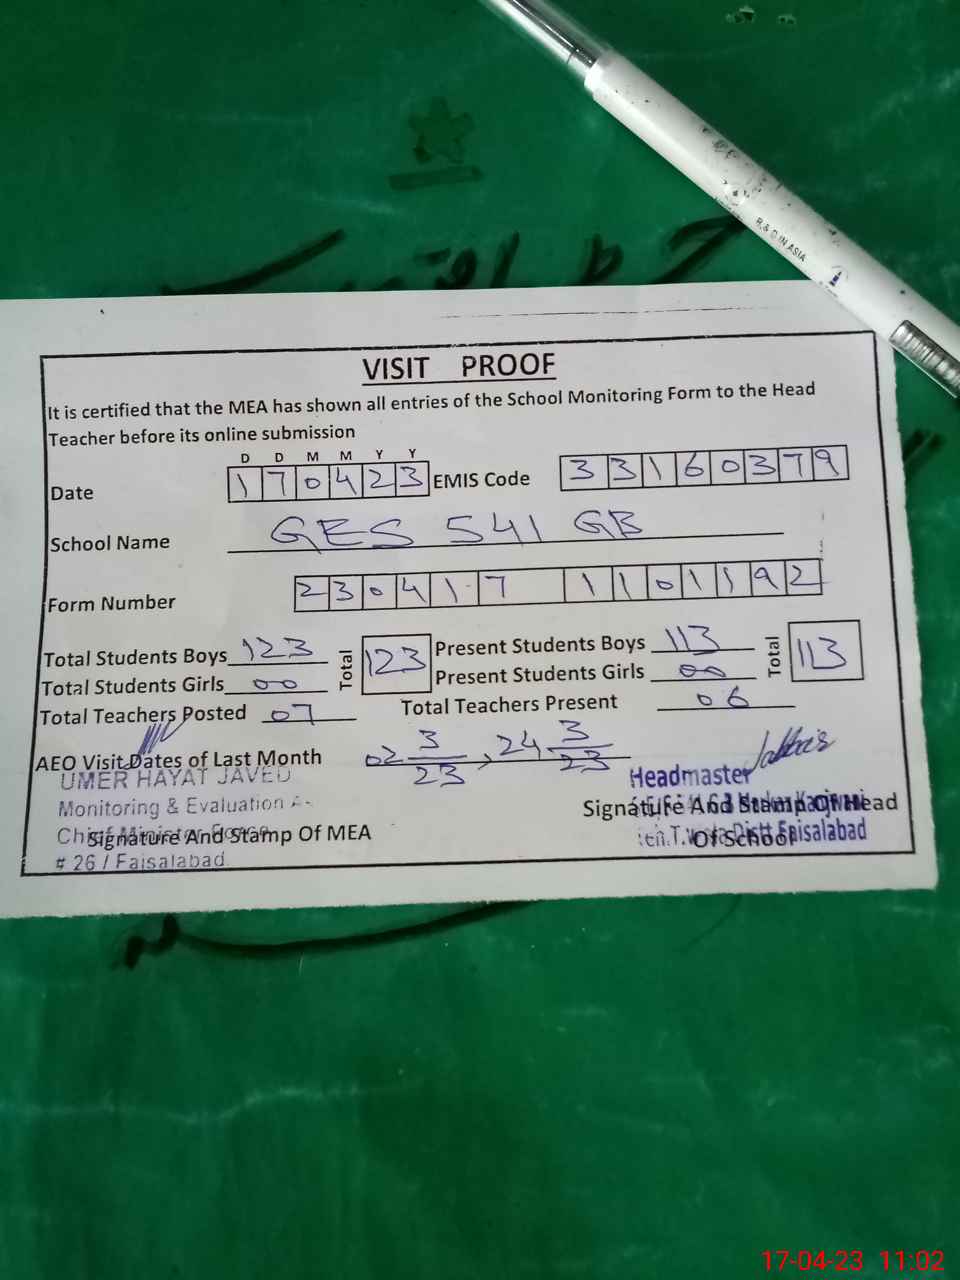 R & D IN ASIA
VISIT PROOF
It is certified that the MEA has shown all entries of the School Monitoring Form to the Head
Teacher before its online submission
D D M M Y Y
Date 170423 EMIS Code 33160379
School Name GES 541 GB
Form Number 230417 1101192
Total Students Boys 123 Total 123 Present Students Boys 113 Total 113
Total Students Girls 00 Present Students Girls 00
Total Teachers Posted 07 Total Teachers Present 06
AEO Visit Dates of Last Month 02 3/23, 24 3/23
UMER HAYAT JAVED Headmaster
Monitoring & Evaluation Signature And Stamp Of Head
Signature And Stamp Of MEA Of School
Distt Faisalabad
# 26 / Faisalabad.
17-04-23 11:02